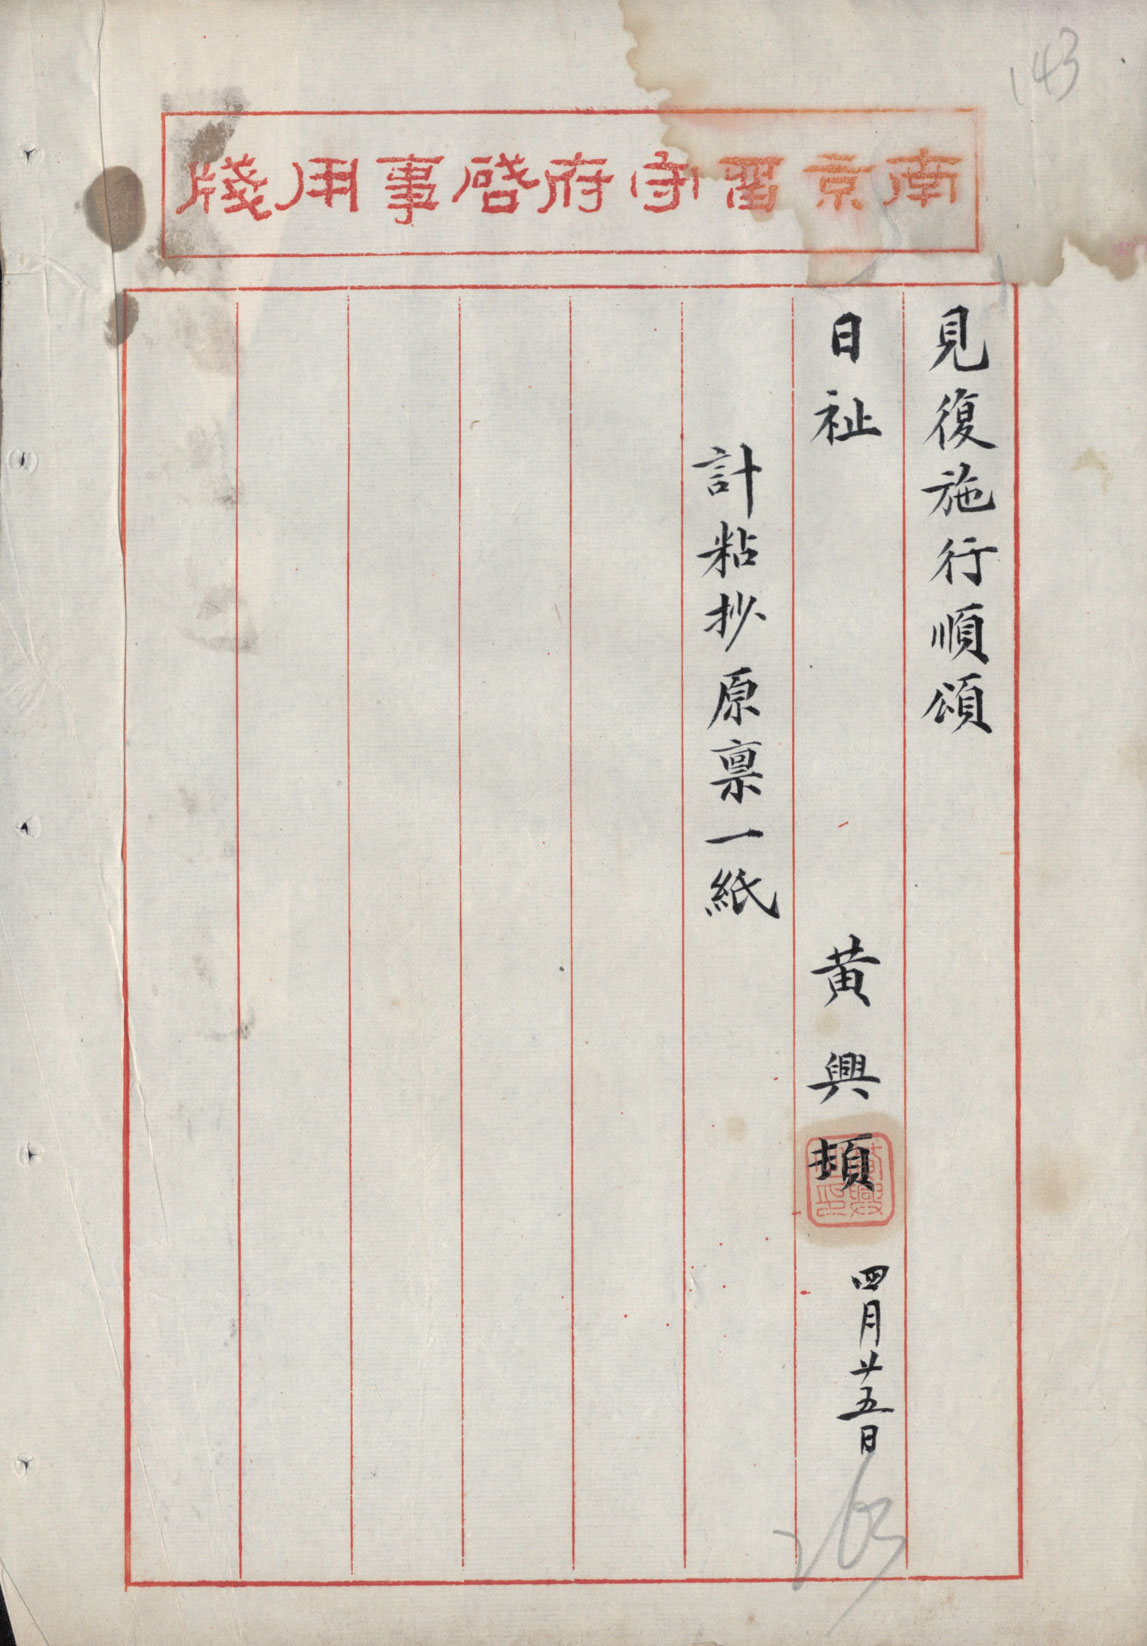 143
南京留守府啓事用牋
見復施行順頌
日祉
黄興頓
四月廿五日
計粘抄原禀一紙